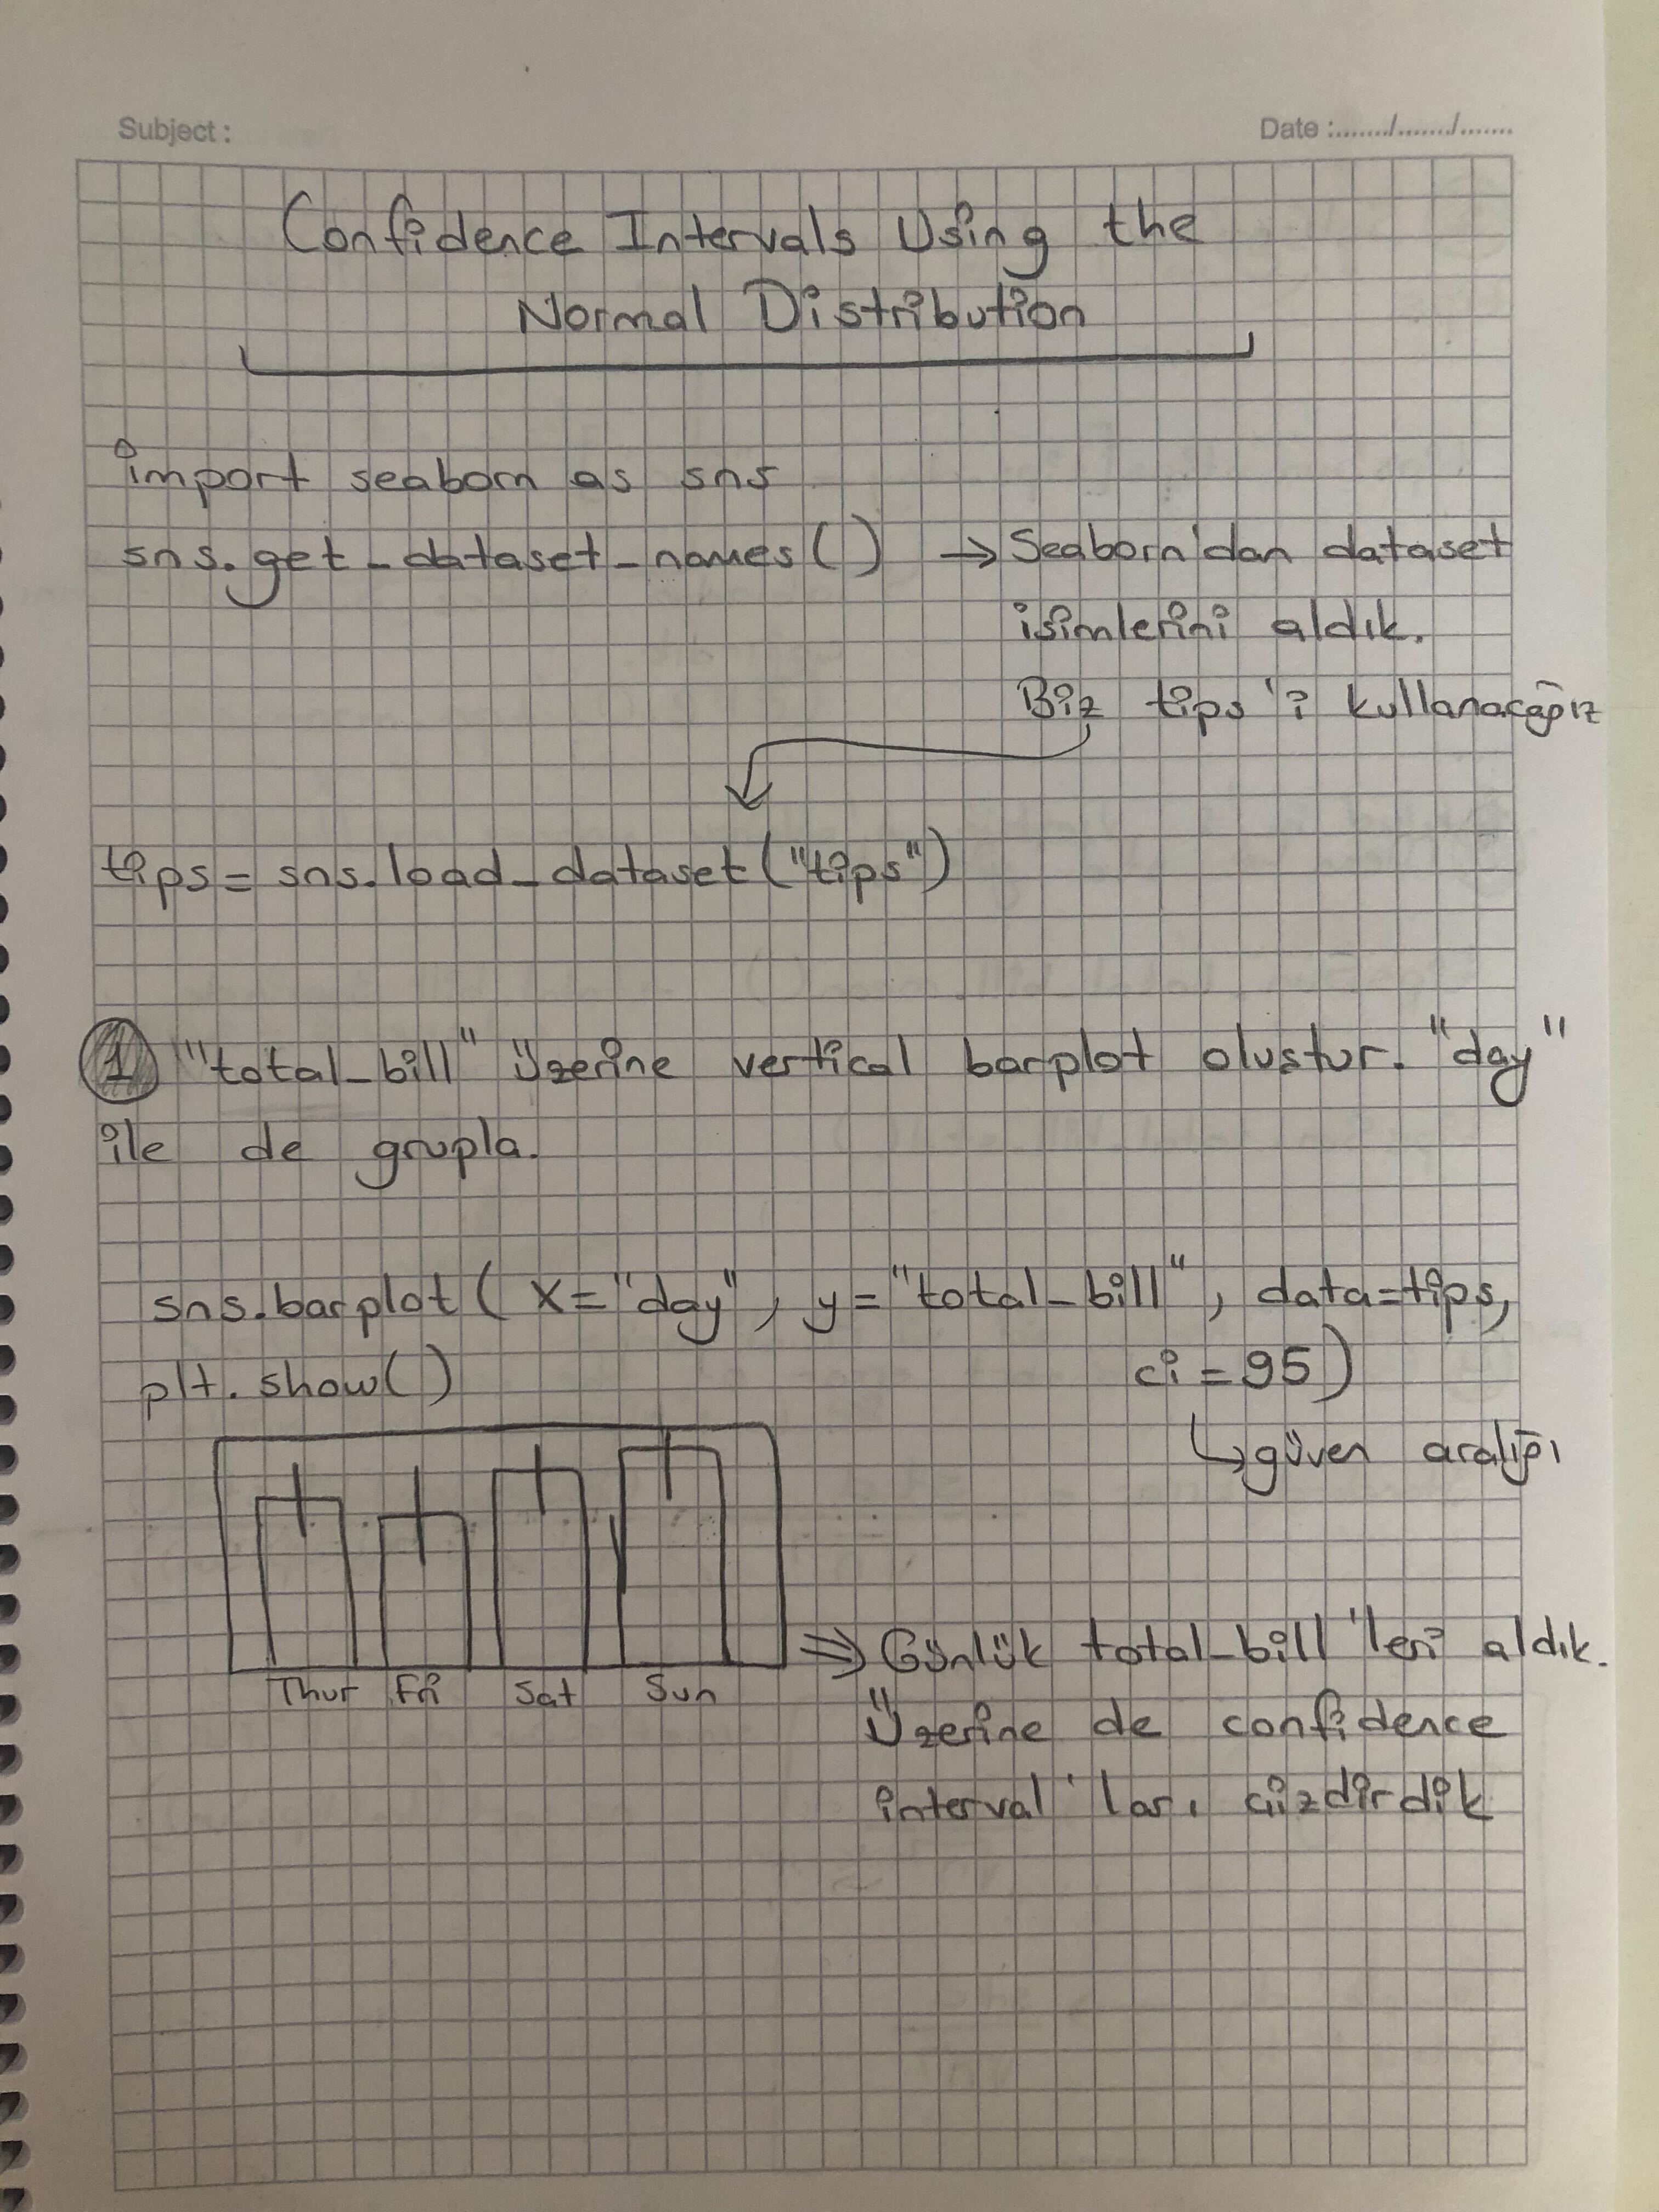 Subject :
Date :......./......./.......
Confidence Intervals Using the
Normal Distribution
import seaborn as sns
sns.get_dataset_names() → Seaborn'dan dataset
isimlerini aldık.
Biz tips'i kullanacağız
tips = sns.load_dataset("tips")
1 "total_bill" üzerine vertical barplot olustur. "day"
ile de grupla.
sns.barplot( x="day", y="total_bill", data=tips,
plt.show() ci=95)
↳ güven aralığı
Thur Fri Sat Sun
⇒ Günlük total_bill'leri aldık.
Üzerine de confidence
interval'ları çizdirdik